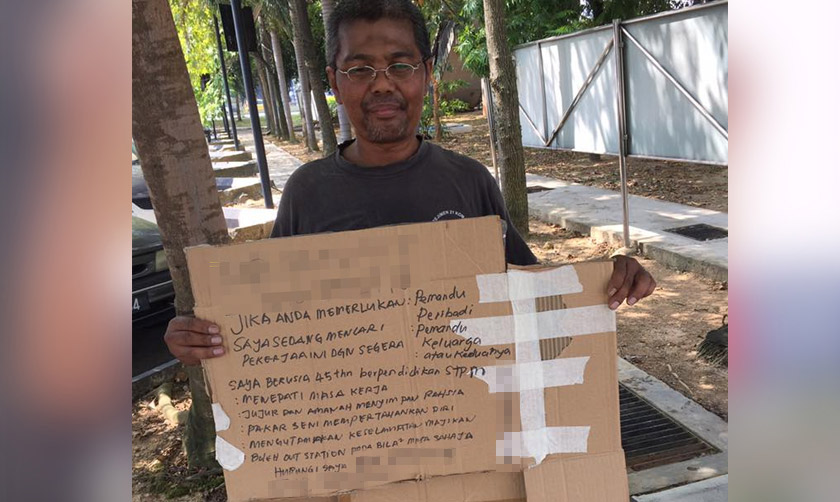 JIKA ANDA MEMERLUKAN : Pemandu
Peribadi
SAYA SEDANG MENCARI : Pemandu
Keluarga
PEKERJAAN INI DGN SEGERA : atau Keduanya
SAYA BERUSIA 45 thn berpendidikan STPM
: MENEPATI MASA KERJA
: JUJUR DAN AMANAH MENYIMPAN RAHSIA
: PAKAR SENI MEMPERTAHANKAN DIRI
: MENGUTAMAKAN KESELAMATAN MAJIKAN
: BOLEH OUT STATION PADA BILA² MASA SAHAJA
HUBUNGI SAYA